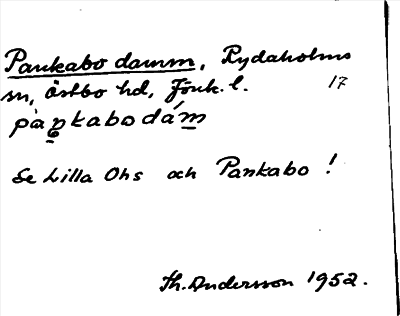 Pankabo damm, Rydaholms
sn, Östbo hd, Jönk. l. 17
pàŋkabodám̲
Se Lilla Ohs och Pankabo !
Th. Andersson 1952.